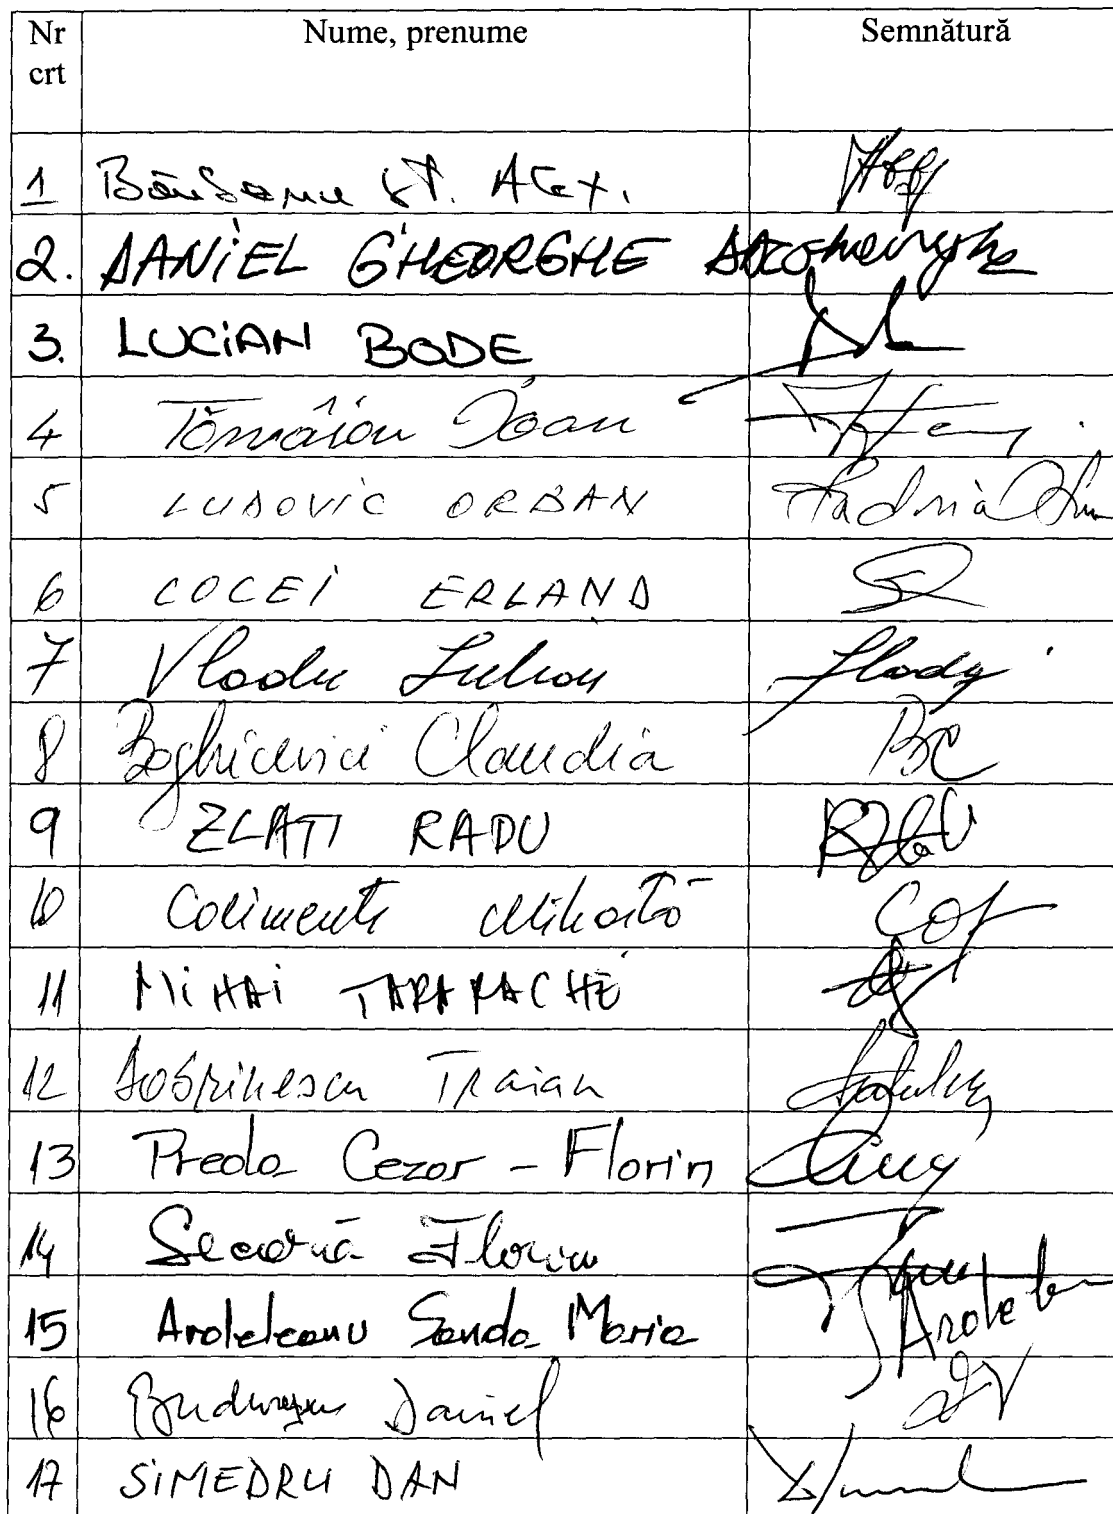 Nr crt Nume, prenume Semnătură
1 Bănșanu Șt. Alex.
2. DANIEL GHEORGHE
3. LUCIAN BODE
4 Tămâian Ioan
5 LUDOVIC ORBAN
6 COCEI ERLAND
7 Vladu Iulian
8 Boghicevici Claudia
9 ZLATI RADU
10 Calimente Mihăiță
11 MIHAI TARARACHE
12 Dobrinescu Traian
13 Preda Cezar - Florin
14 Secară Florin
15 Ardeleanu Sanda Maria
16 Budurescu Daniel
17 SIMEDRU DAN